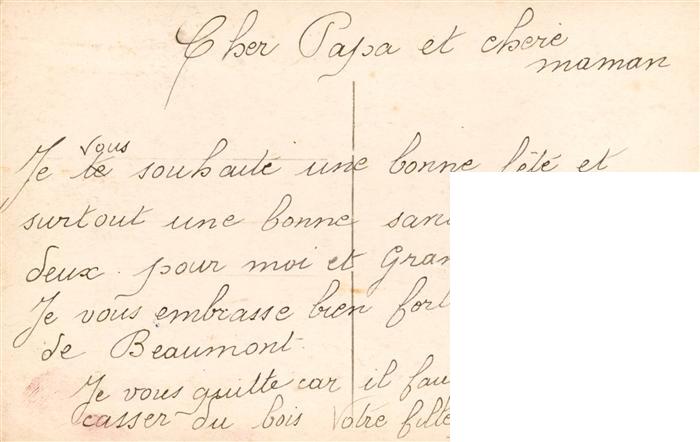 Cher Papa et cheré
maman
vous
Je te souhaité une bonne fêté et
surtout une bonne
deux. pour moi et
Je vous embrasse bien fort
de Beaumont.
Je vous quitte car il
casser du bois Votre